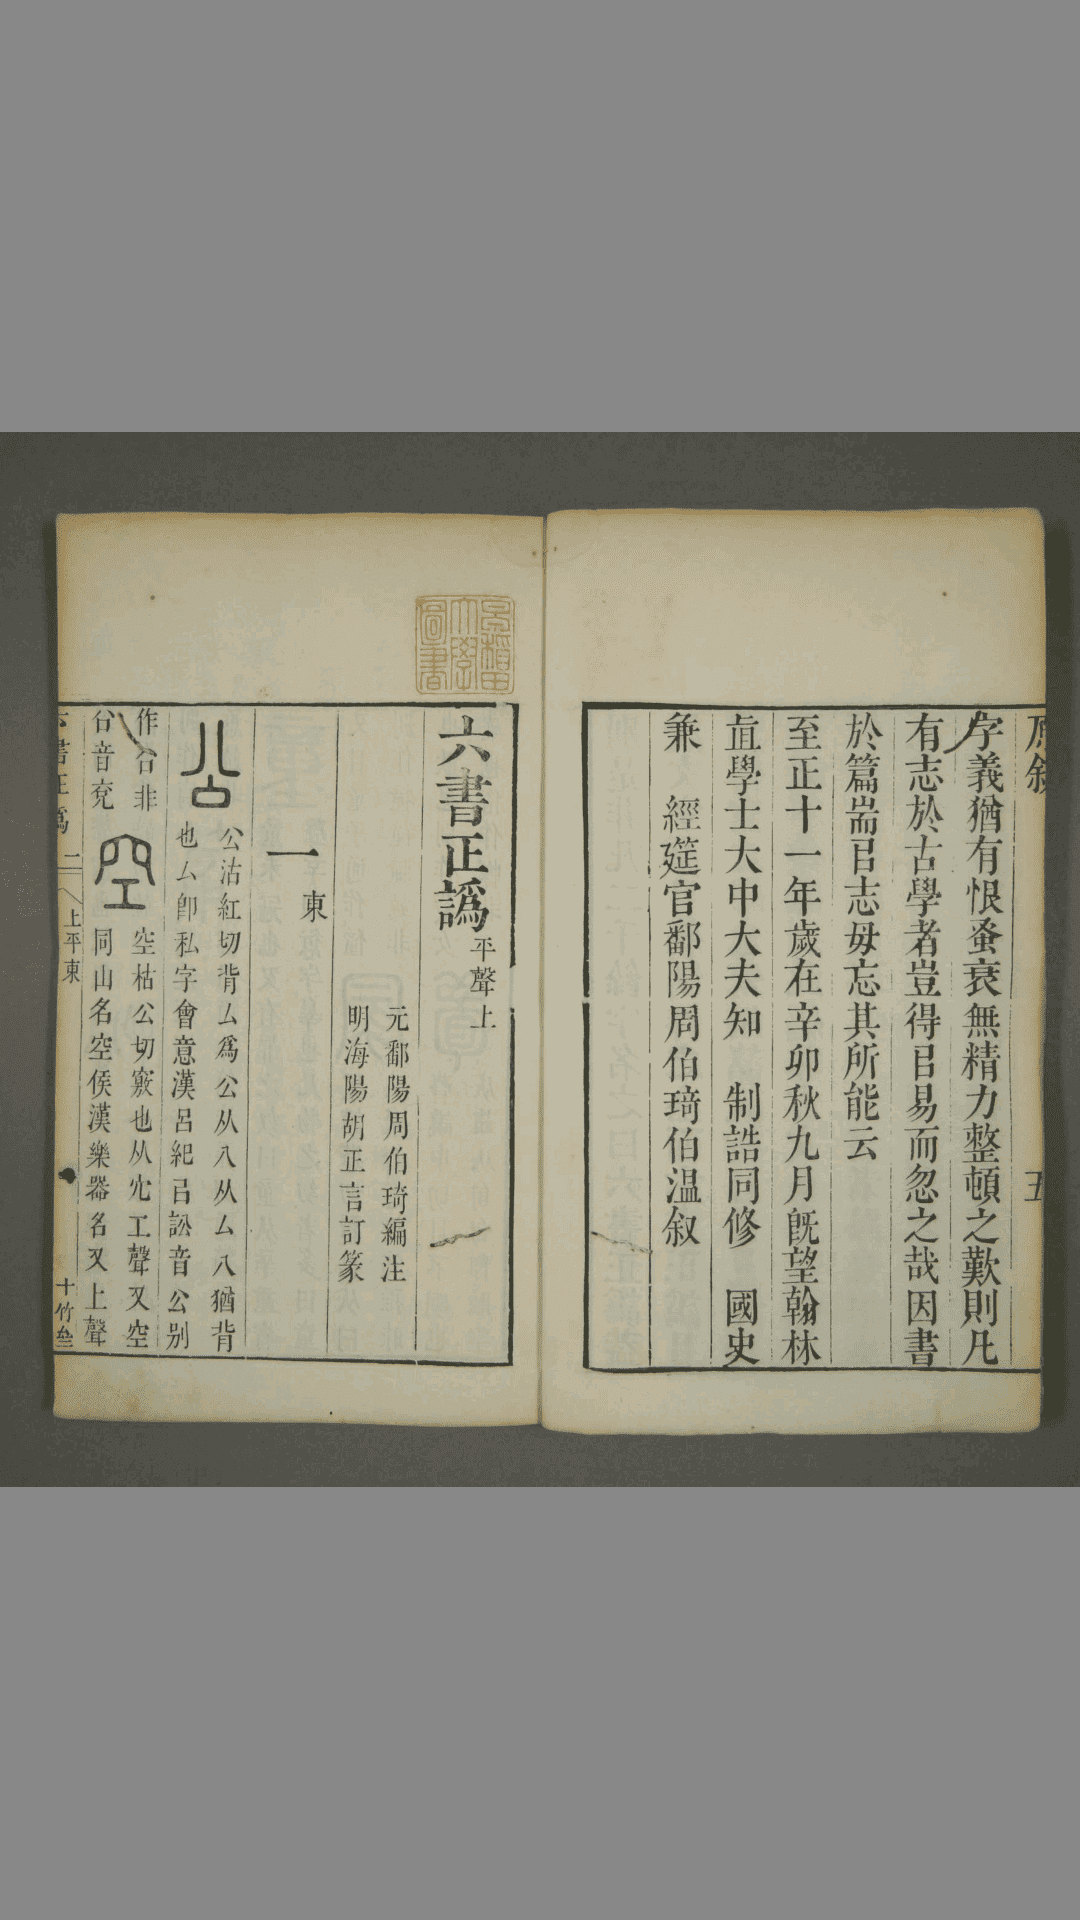 原敘
五
字義猶有恨蚤衰無精力整頓之歎則凡
有志於古學者豈得㠯易而忽之哉因書
於篇耑㠯志毋忘其所能云
至正十一年歲在辛卯秋九月旣望翰林
直學士大中大夫知　制誥同修　國史
兼　經筵官鄱陽周伯琦伯溫叙
早稻田
大學
圖書
六書正譌平聲上
元鄱陽周伯琦編注
明海陽胡正言訂篆
一東
公沽紅切背厶爲公从八从厶八猶背
也厶卽私字會意漢呂紀㠯訟音公别
作㕣非
㕣音兗
空枯公切竅也从穴工聲又空
同山名空侯漢樂器名又上聲
六書正譌
二
上平東
十竹